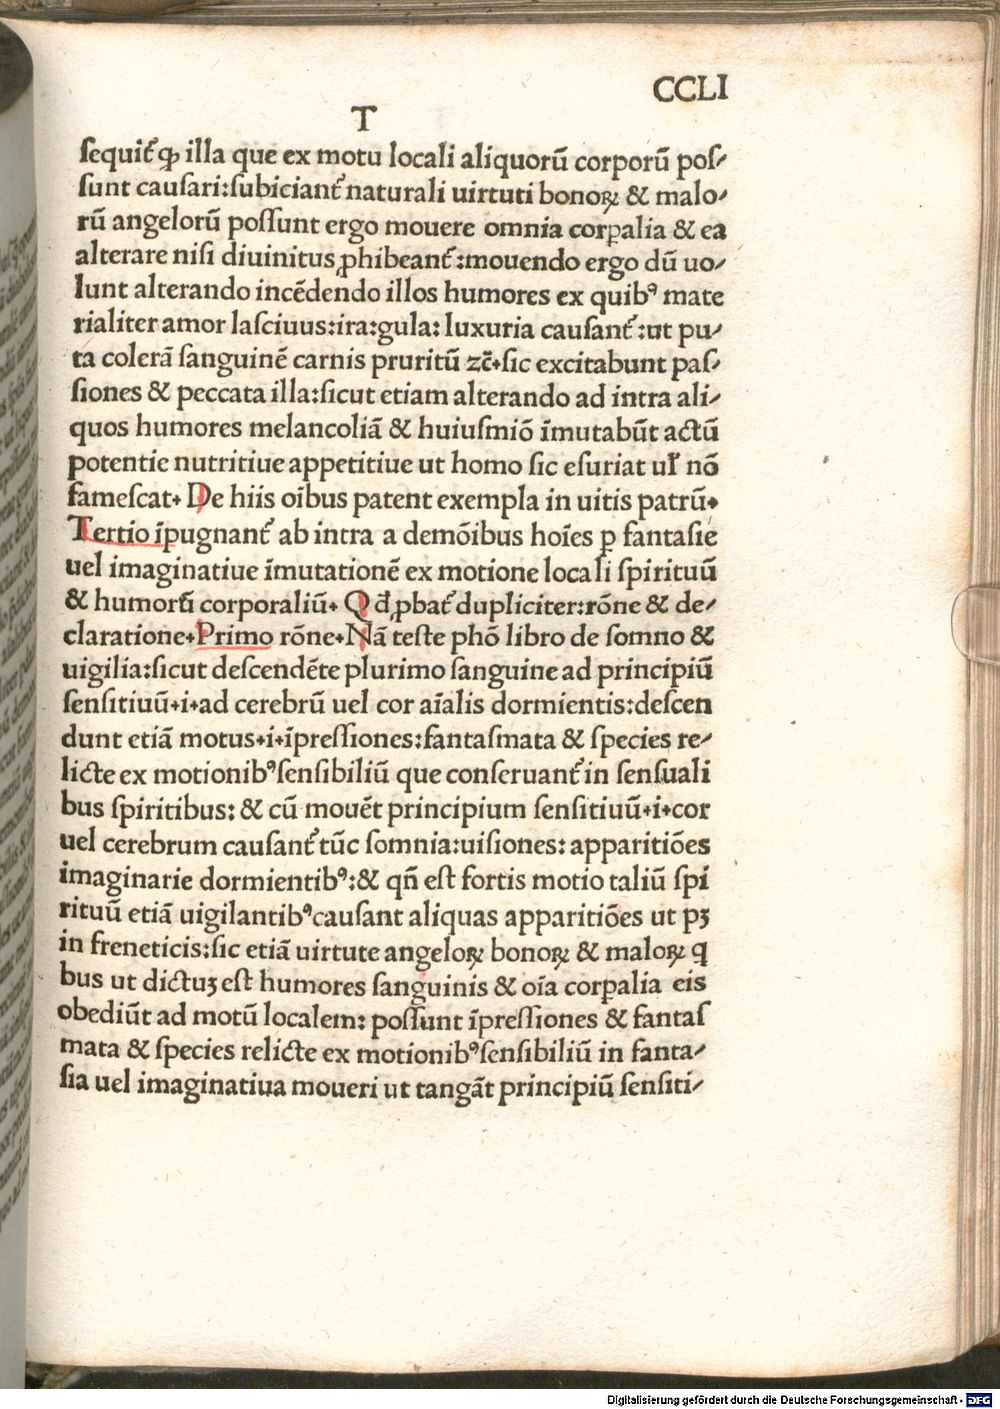 CCLI
T
ſequit᷑ ꝙ illa que ex motu locali aliquorū corporū poſ⸗
ſunt cauſari:ſubiciant᷑ naturali uirtuti bonoꝝ & malo⸗
rū angelorū poſſunt ergo mouere omnia corꝑalia & ea
alterare niſi diuinitus ꝓhibeant᷑:mouendo ergo dū uo⸗
lunt alterando incēdendo illos humores ex quibꝰ mate
rialiter amor laſciuus:ira:gula: luxuria cauſant᷑:ut pu⸗
ta colerā ſanguinē carnis pruritū ⁊c̄.ſic excitabunt paſ⸗
ſiones & peccata illa:ſicut etiam alterando ad intra ali⸗
quos humores melancoliā & huiuſmiō īmutabūt actū
potentie nutritiue appetitiue ut homo ſic eſuriat ul̓ nō
fameſcat. De hiis oībus patent exempla in uitis patrū.
Tertio īpugnant᷑ ab intra a demōibus hoīes ꝑ fantaſie
uel imaginatiue īmutationē ex motione locali ſpirituū
& humorū corporaliū. Qđ ꝓbat᷑ dupliciter:rōne & de⸗
claratione.Primo rōne.Nā teſte phō libro de ſomno &
uigilia:ſicut deſcendēte plurimo ſanguine ad principiū
ſenſitiuū.i.ad cerebrū uel cor aīalis dormientis:deſcen
dunt etiā motus.i.īpreſſiones:fantaſmata & ſpecies re⸗
licte ex motionibꝰ ſenſibiliū que conſeruant᷑ in ſenſuali
bus ſpiritibus: & cū mouēt principium ſenſitiuū.i.cor
uel cerebrum cauſant᷑ tūc ſomnia:uiſiones: apparitiōes
imaginarie dormientibꝰ:& qn̄ eſt fortis motio taliū ſpi
rituū etiā uigilantibꝰ cauſant aliquas apparitiōes ut pꝫ
in freneticis:ſic etiā uirtute angeloꝝ bonoꝝ & maloꝝ ꝗ
bus ut dictuꝫ eſt humores ſanguinis & oīa corꝑalia eis
obediūt ad motū localem: poſſunt īpreſſiones & fantaſ
mata & ſpecies relicte ex motionibꝰ ſenſibiliū in fanta⸗
ſia uel imaginatiua moueri ut tangāt principiū ſenſiti⸗
Digitalisierung gefördert durch die Deutsche Forschungsgemeinschaft - DFG